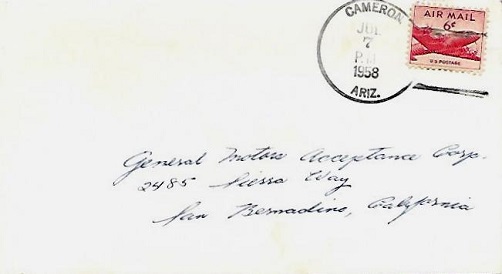 CAMERON
JUL
7
P.M.
1958
ARIZ.
AIR MAIL
6¢
U.S. POSTAGE
General Motors Acceptance Corp.
2485 Sierra Way
San Bernadino, California